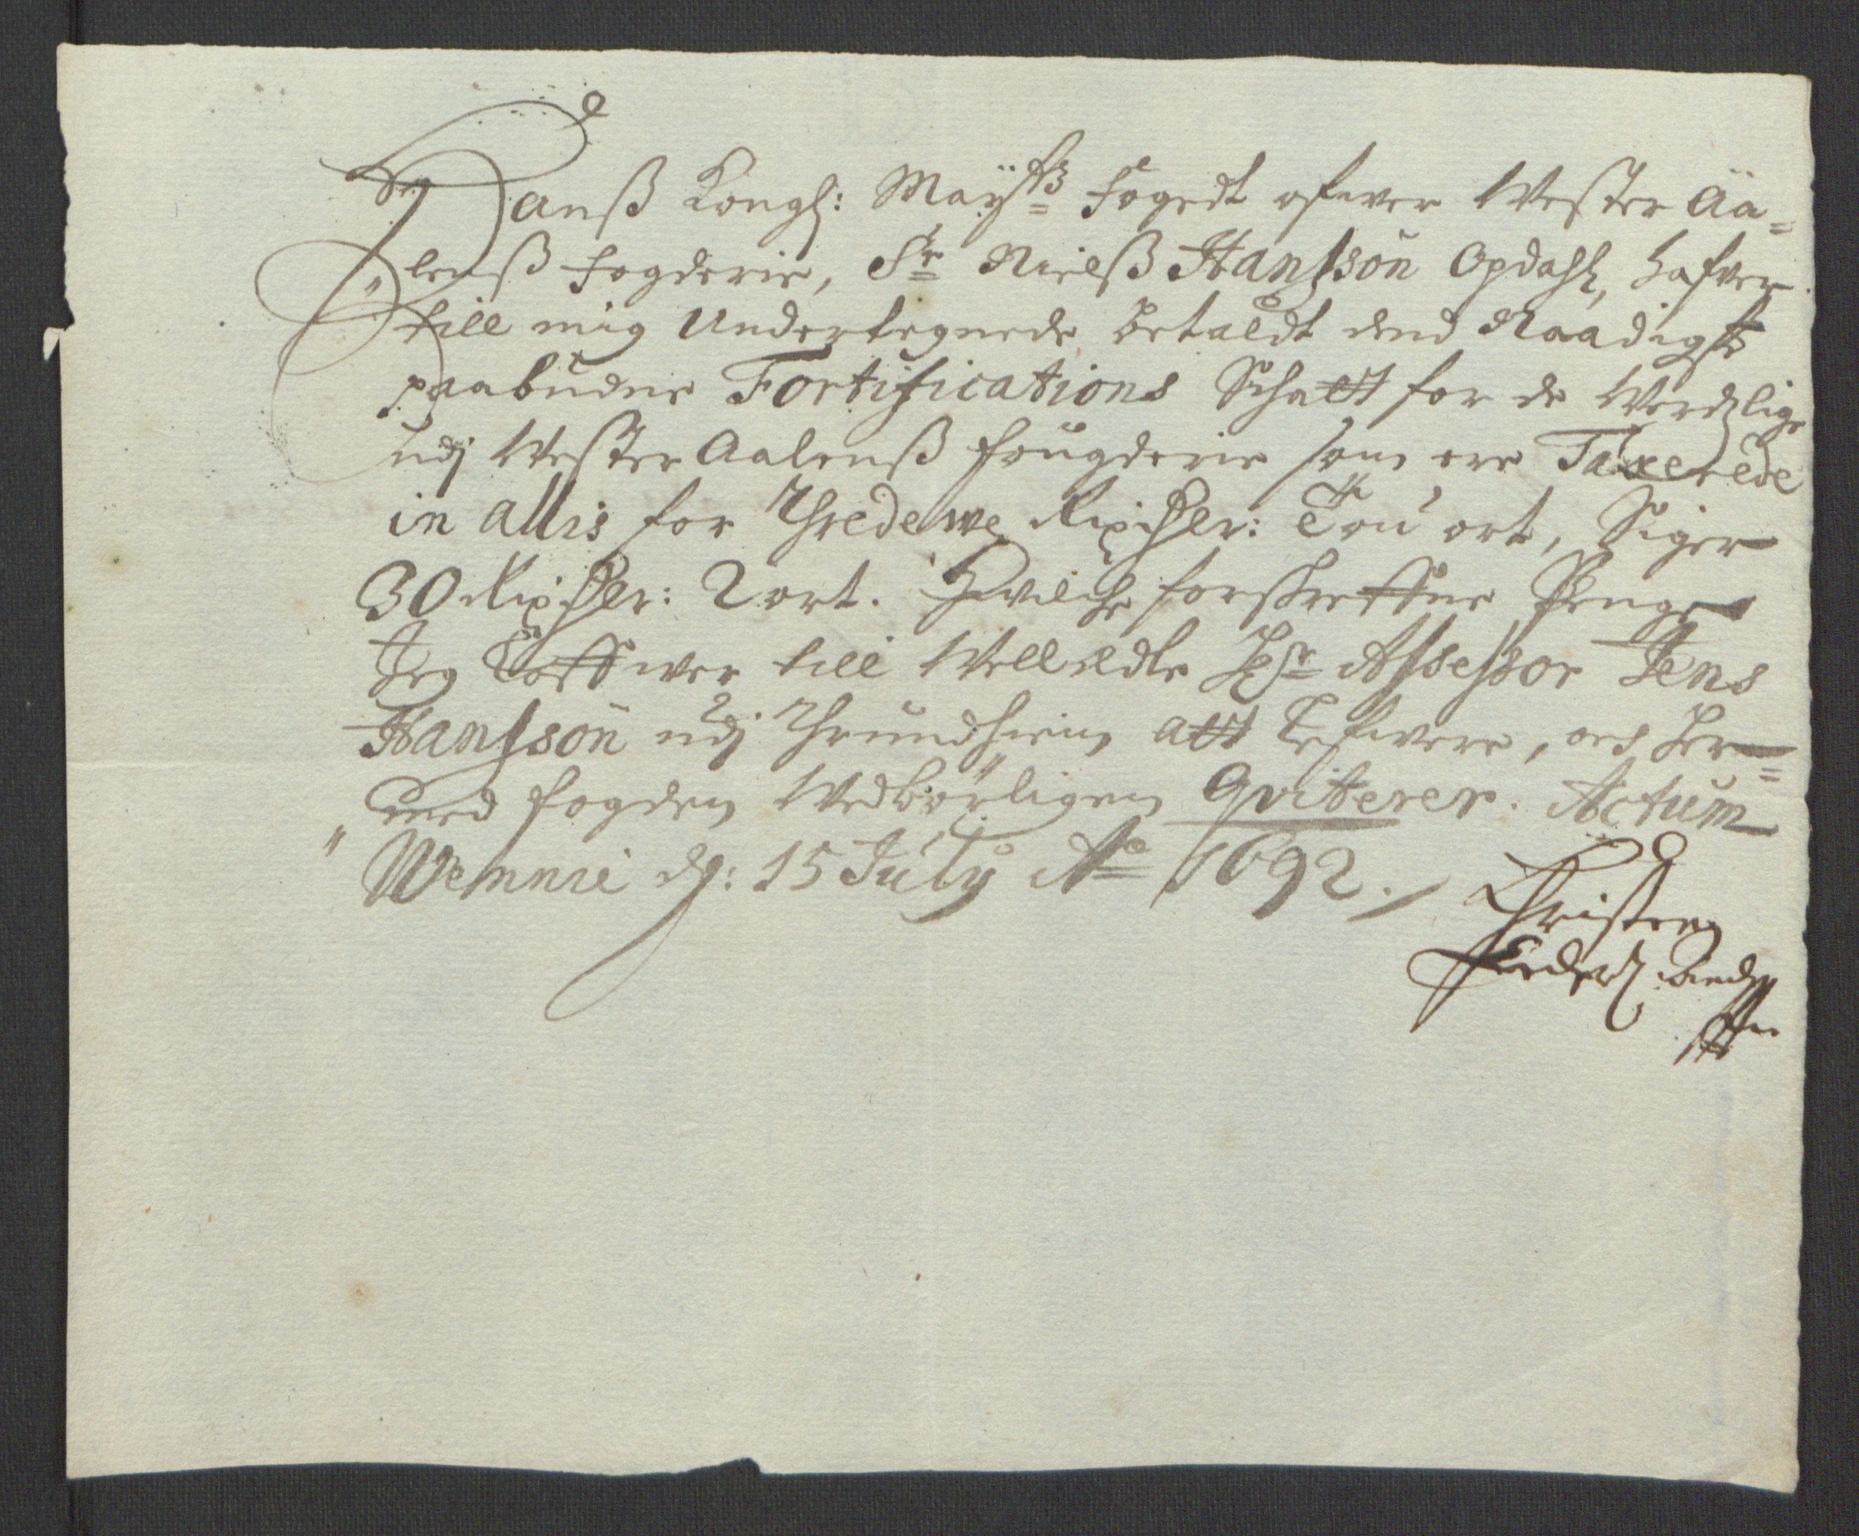 Hanß Kongl: Mayttß Fogedt ofwer Wester Aa=
lenß Fogderie, Sr Nielß Hanßsön Opdahl, hafver
till mig Undertegnede betaldt dend Naadigste
paabudne Fortifications Schatt for de Werdslige
udj Wester Aalenß fougderie som ere Taxerede
in allis for Thredewe Rixdler: Tou ort, Siger
30 Rixdler: 2 ort. Hvilche forskrefne Penge
Jeg lofwer till Well Edle Hr Assessor Jens
Hanßsön udj Thrundhiem att lefwere, och her=
med fogden Wedbörligen Qviterer. Actum
Wemnie d: 15 July Ao 1692.
Christen